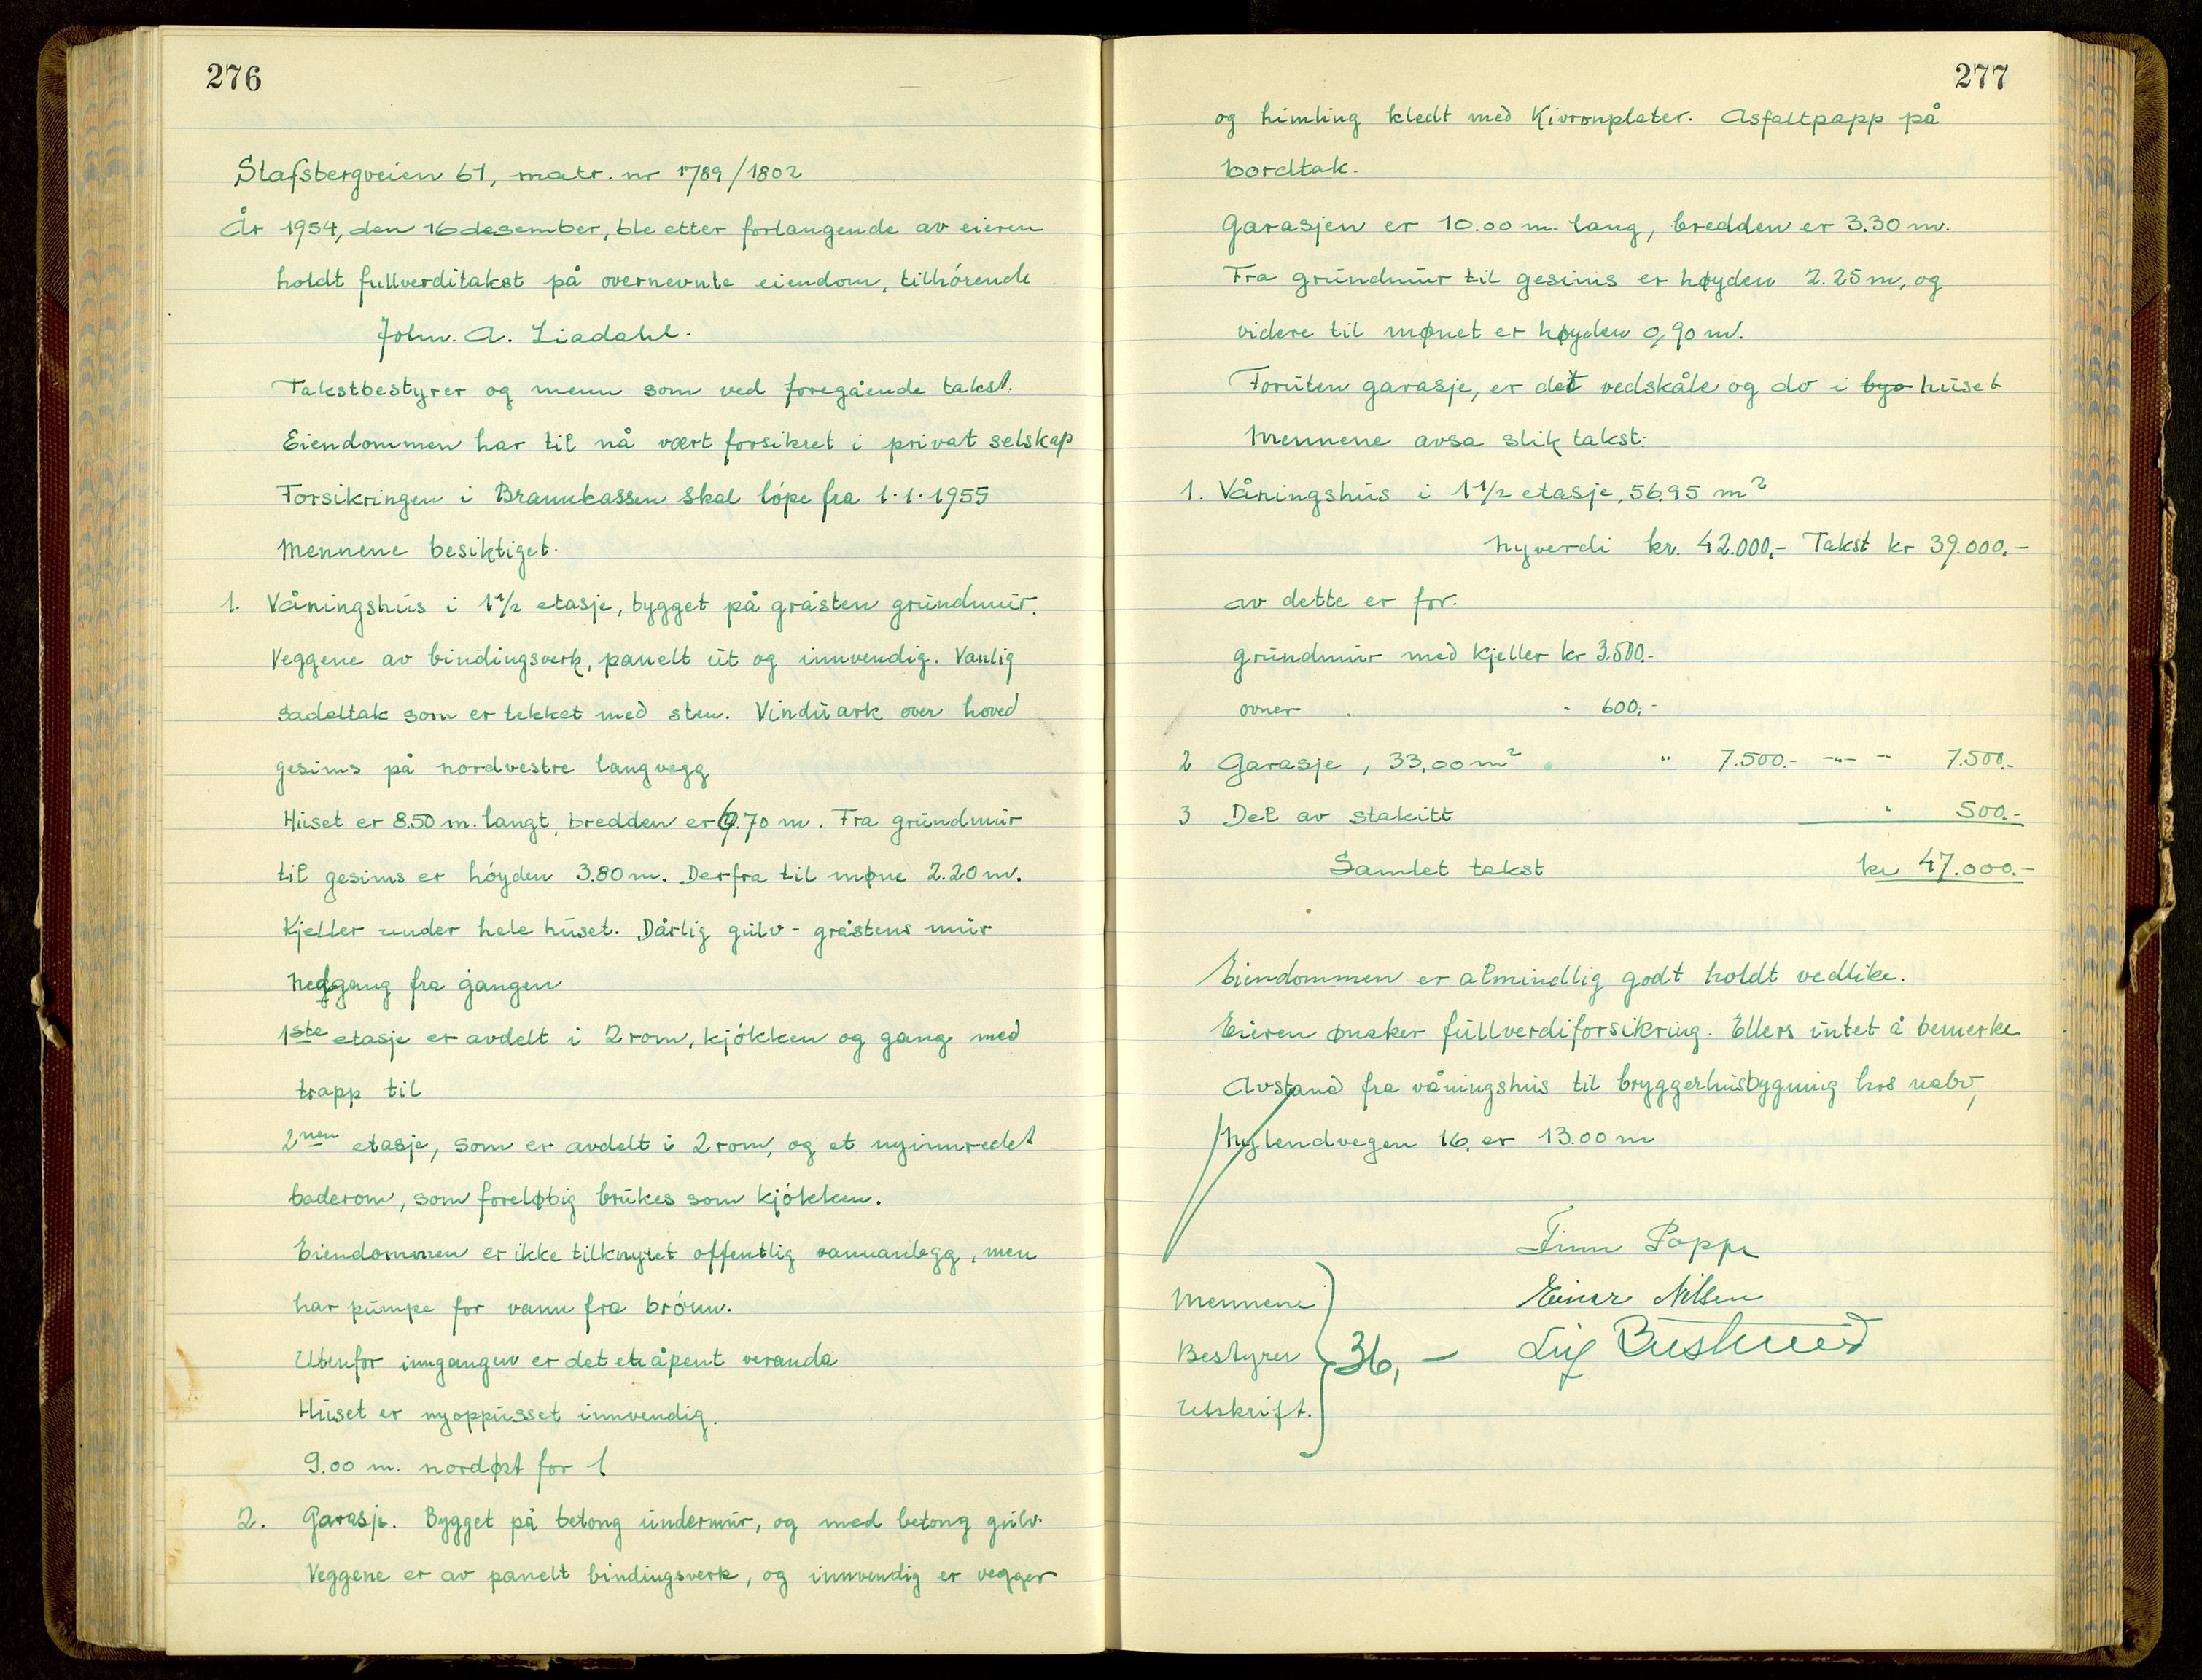 276
Slafsbergveien 61, matr. nr 1789/1802
År 1954, den 16 desember, ble etter forlangende av eieren
holdt fullverditakst på overnevnte eiendom, tilhórende
John. A. Liadahl.
Takstbestyrer og menn som ved foregående takst.
Eiendommen har til nå vært forsikret i privat selskap
Forsikringen i Brannkassen skal lópe fra 1.1.1955
Mennene besiktiget.
1. Våningshus i 1 1/2 etasje, bygget på gråsten grundmur.
Veggene av bindingsverk, panelt ut og innvendig. Vanlig
Sadeltak som er tekket med sten. Vinduark over hoved
gesims på nordvestre langvegg
Huset er 8.50 m. langt, bredden er 6.70 m. Fra grundmur
til gesims er hóyden 3.80 m. Derfra til møne 2.20 m.
Kjeller under hele huset. Dårlig gulv - gråstens mur
Nedgang fra gangen
1ste etasje er avdelt i 2 rom, kjókken og gang med
trapp til
2nen etasje, som er avdelt i 2 rom, og et nyinnredet
baderom, som foreløbig brukes som kjókken.
Eiendommen er ikke tilknytet offentlig vannanlegg, men
har pumpe for vann fra brónn.
Utenfor inngangen er det et åpent veranda
Huset er nyoppusset innvendig.
9.00 m. nordøst for 1
2. Garasje. Bygget på betong undermur, og med betong gulv.
Veggene er av panelt bindingsverk, og innvendig er vegger
277
og himling kledt med Kivronplater. Asfaltpapp på
bordtak.
Garasjen er 10.00 m. lang, bredden er 3.30 m.
Fra grundmur til gesims er høyden 2.25 m, og
videre til mønet er høyden 0,90 m.
Foruten garasje, er det vedskåle og do i byo huset
Mennene avsa slik takst:
1. Våningshus i 1 1/2 etasje, 56.95 m²
Nyverdi kr. 42.000,- Takst kr 39.000,-
av dette er for.
grundmur med kjeller kr 3.500.-
ovner - 600,-
2 Garasje, 33,00 m² " 7.500.- -"- - 7.500.-
3 Del av stakitt " 500.-
Samlet takst kr 47.000.-
Eiendommen er almindlig godt holdt vedlike.
Eieren ønsker fullverdiforsikring. Ellers intet å bemerke
Avstand fra våningshus til bryggerhusbygning hos nabo,
Nylendvegen 16, er 13.00 m
Finn Poppe
Mennene
Einar Nilsen
Bestyrer 36,-
Utskrift.